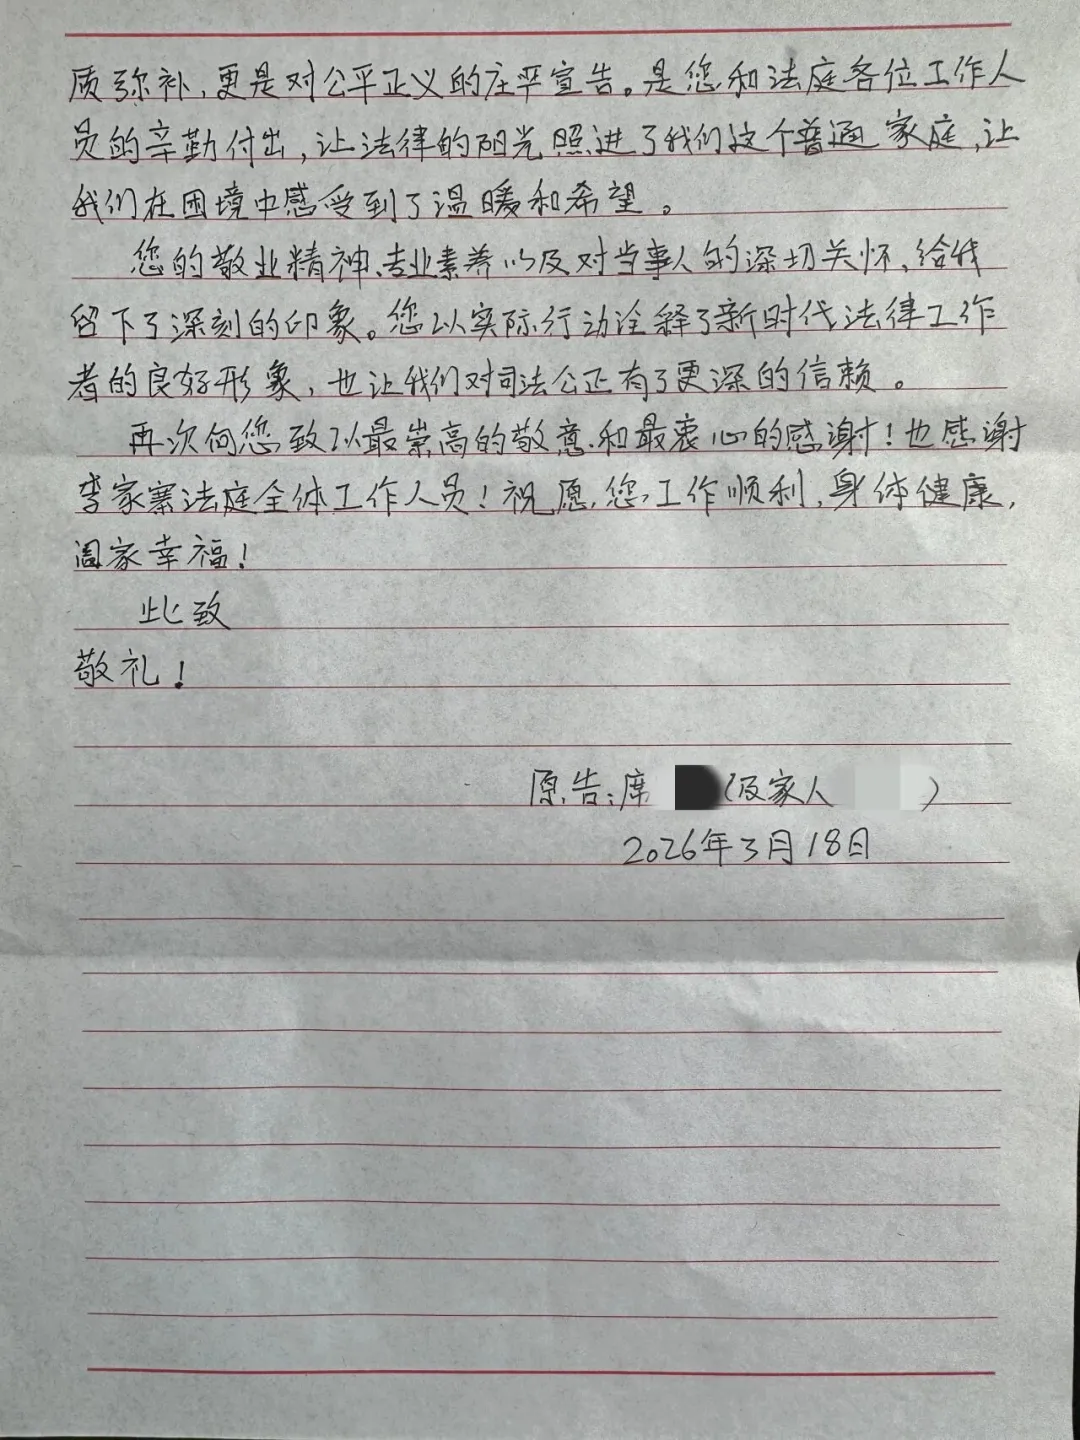 质弥补,更是对公平正义的庄严宣告。是您和法庭各位工作人
员的辛勤付出,让法律的阳光照进了我们这个普通家庭,让
我们在困境中感受到了温暖和希望。
您的敬业精神、专业素养以及对当事人的深切关怀、给我
留下了深刻的印象。您以实际行动诠释了新时代法律工作
者的良好形象,也让我们对司法公正有了更深的信赖。
再次向您致以最崇高的敬意和最衷心的感谢!也感谢
李家寨法庭全体工作人员!祝愿您工作顺利,身体健康,
阖家幸福!
此致
敬礼!
原告:席(及家人)
2026年3月18日